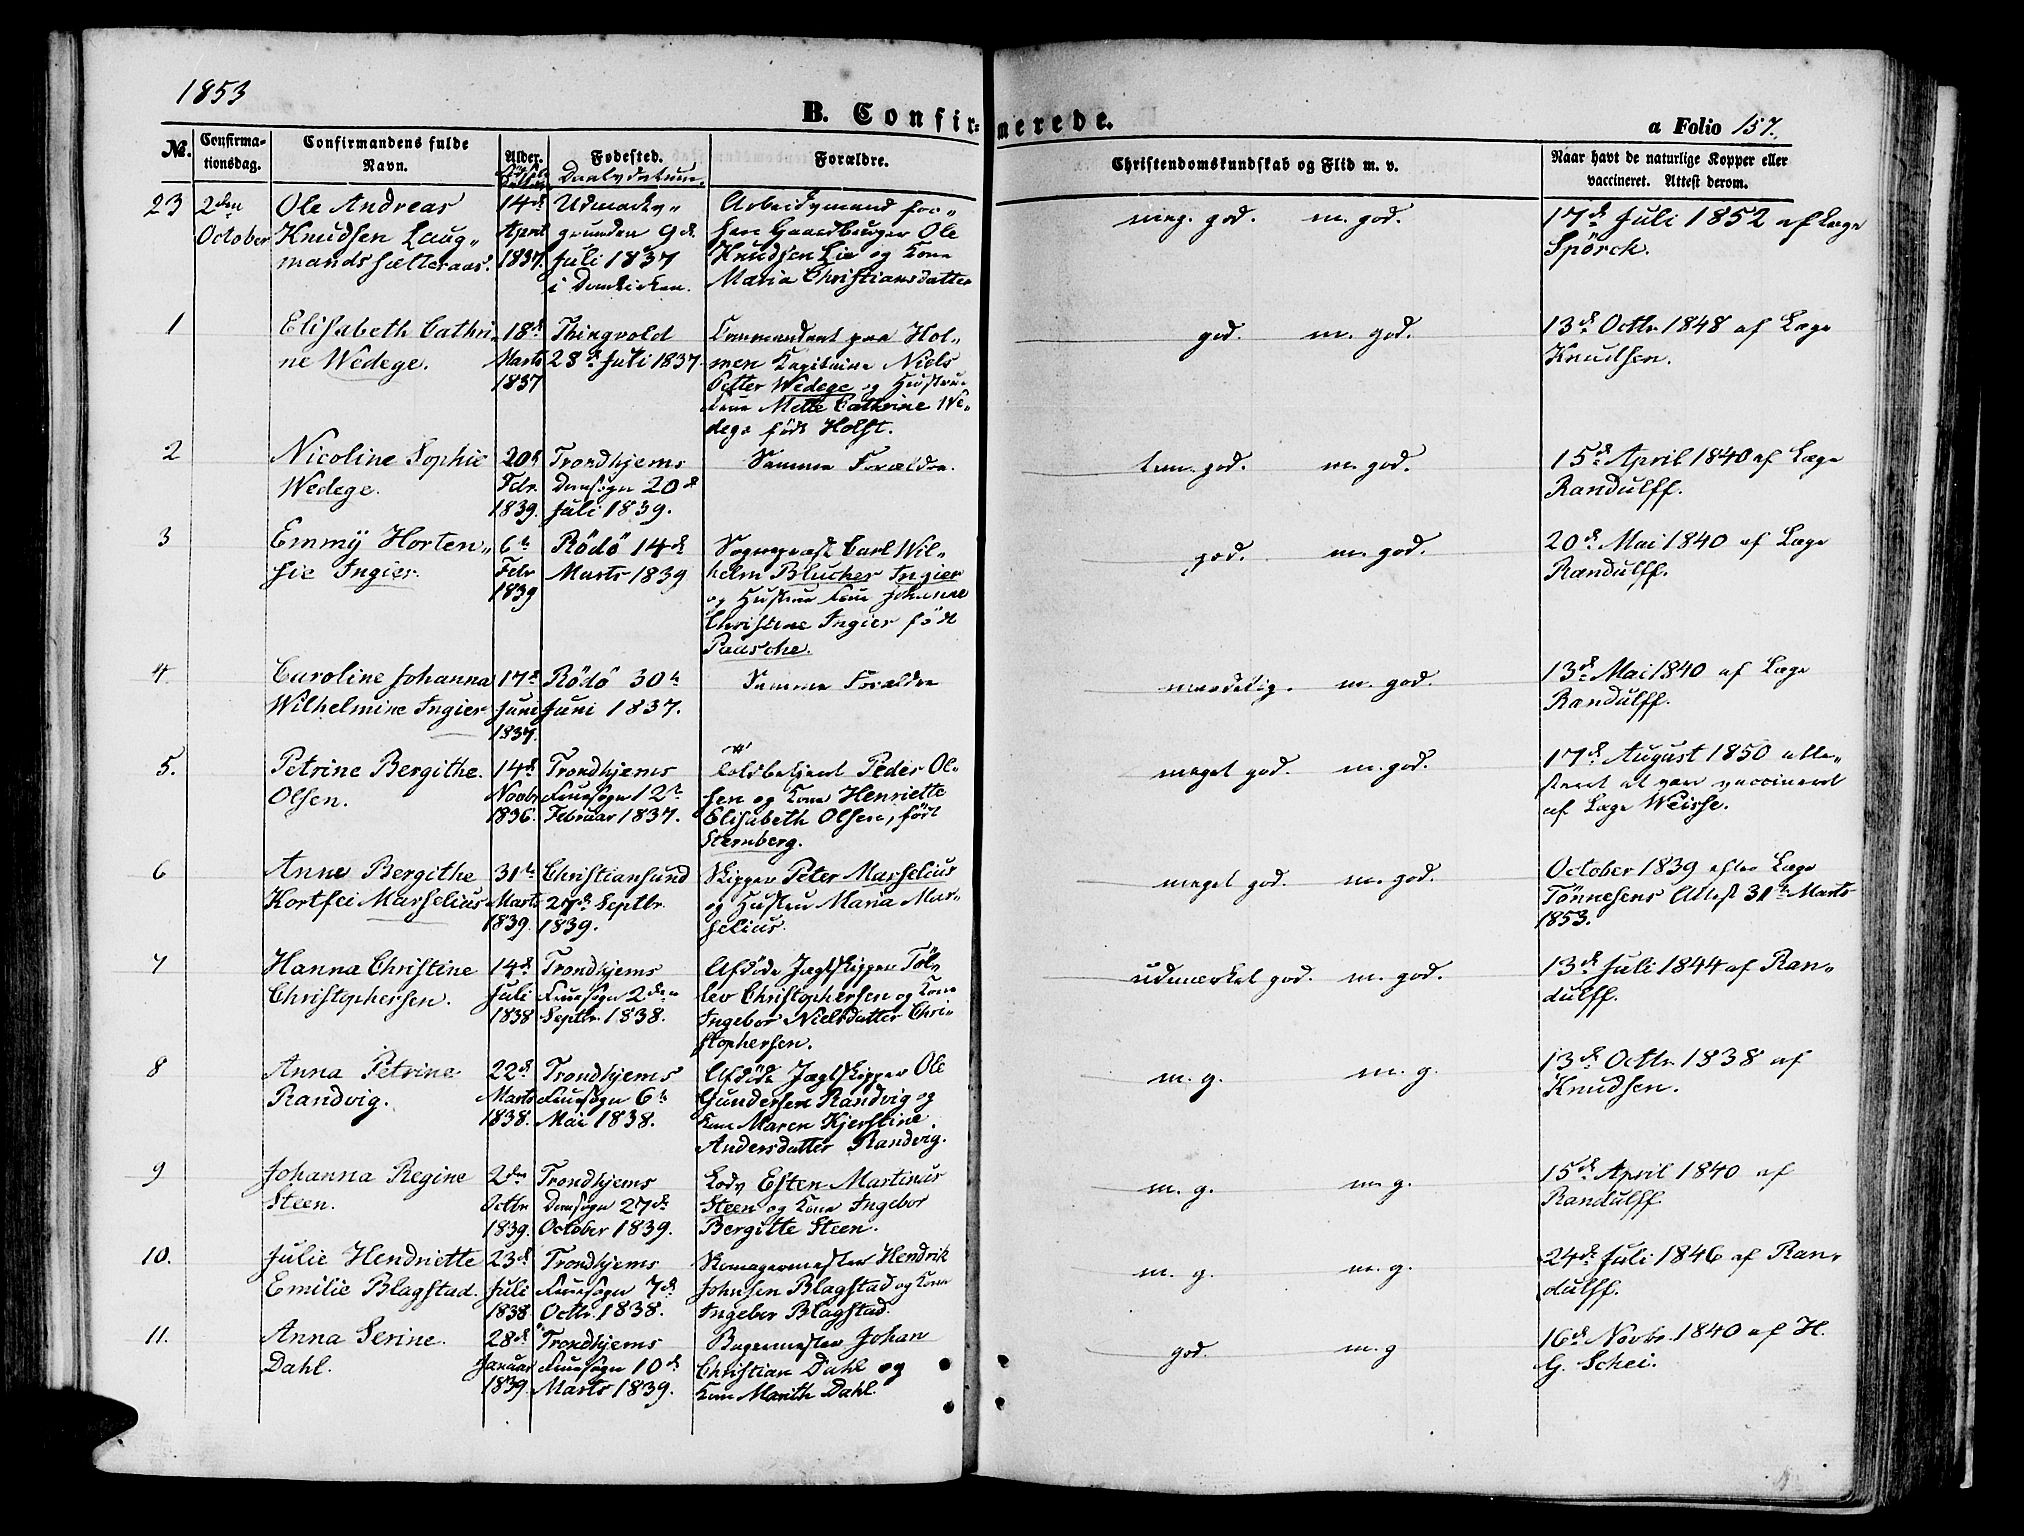 1853
B. Confirmerede.
a Folio 157.
No.
Confirma-
tionsdag.
Confirmandens fulde
Navn.
Alder.
Fødested.
Daabsdatum.
Forældre.
Christendomskundskab og Flid m. v.
Naar havt de naturlige Kopper eller
vaccineret. Attest derom.
23
2den
October
Ole Andreas
Knudsen Laug„
mandssætteraas.
14de
April
1837.
Udmarks„
grunden 9de
Juli 1837
i Domkirken.
Arbeidsmand for„
hen Gaardbruger Ole
Knudsen Lie og Kone
Maria Christiansdatter
meg. god. m. god.
17de Juli 1852 af Læge
Spörck.
1
Elisabeth Cathri„
ne Wedege.
18de
Marts
1837
Thingvold
28de Juli 1837.
Commandant paa Hol„
men Kapitaine Niels
Petter Wedege og Hustrue
Frue Mette Cathrine We„
dege født Holst.
god. m. god.
13de Octbr 1848 af Læge
Knudsen.
2
Nicoline Sophie
Wedege.
20de
Febr.
1839.
Trondhjems
Domsogn 20de
Juli 1839.
Samme Forældre.
tem. god. m. god.
15de April 1840 af Læge
Randulff.
3
Emmÿ Horten„
sie Ingier.
6te
Febr
1839
Rödö 14de
Marts 1839
Sognepræst Carl Wil„
helm Blucher Ingier
og Hustrue Frue Johanne
Christine Ingier født
Pausche.
god. m. god.
20de Mai 1840 af Læge
Randulff.
4
Caroline Johanna
Wilhelmine Ingier
17de
Juni
1837.
Rödö 30te
Juni 1837.
Samme Forældre
maadelig. m. god.
13de Mai 1840 af Læge
Randulff.
5.
Petrine Bergithe
Olsen.
14de
Novbr
1836.
Trondhjems
Fruesogn 12te
Februar 1837.
Toldbetjent Peder Ol„
sen og Kone Henriette
Elisabeth Olsen, født
Sternberg.
meget god. m. god.
17de August 1850 atte„
steret at være vaccineret
af Læge Weisse.
6
Anne Bergithe
Kortfei Marselius
31te
Marts
1839.
Christiansund
27de Septbr.
1839.
Skipper Peter Marselius
og Hustru Maria Mar„
selius.
meget god. m. god.
October 1839 efter Læge
Tönnesens Attest 31te Marts
1853.
7
Hanna Christine
Christophersen.
14de
Juli
1838
Trondhjems
Fruesogn 2den
Septbr. 1838.
Afdöde Jagtskipper Töl„
lev Christophersen og Kone
Ingebor Nielsdatter Chri„
stophersen.
udmærket god. m. god.
13de Juli 1844 af Ran„
dulff.
8
Anna Petrine
Randvig.
22de
Marts
1838.
Trondhjems
Fruesogn 6te
Mai 1838.
Afdöde Jagtskipper Ole
Gundersen Randvig og
Kone Maren Kjerstine
Andersdatter Randvig.
m. g. m. g.
13de Octbr 1838 af
Knudsen.
9
Johanna Regine
Steen.
2den
Octbr
1839.
Trondhjems
Domsogn 27de
October 1839.
Lods Esten Martinus
Steen og Kone Ingebor
Bergitte Steen.
m. g. m. g.
15de April 1840 af
Randulff
10.
Julie Hendriette
Emilie Blagstad.
23de
Juli
1838
Trondhjems
Fruesogn 7de
Octbr. 1838.
Skomagermester Hendrik
Johnsen Blagstad og Kone
Ingebor Blagstad.
m. g. m. g.
24de Juli 1846 af Ran„
dulff.
11.
Anna Serine
Dahl.
28de
Januar
1839.
Trondhjems
Fruesogn 10de
Marts 1839.
Bagermester Johan
Christian Dahl og
Kone Marith Dahl
god. m. g
16de Novbr. 1840 af H.
G. Schei.